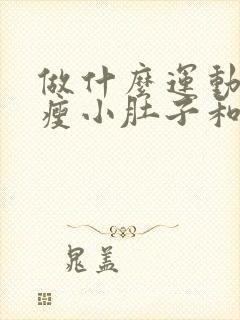 做什麼運動
瘦小肚子和
晁盖